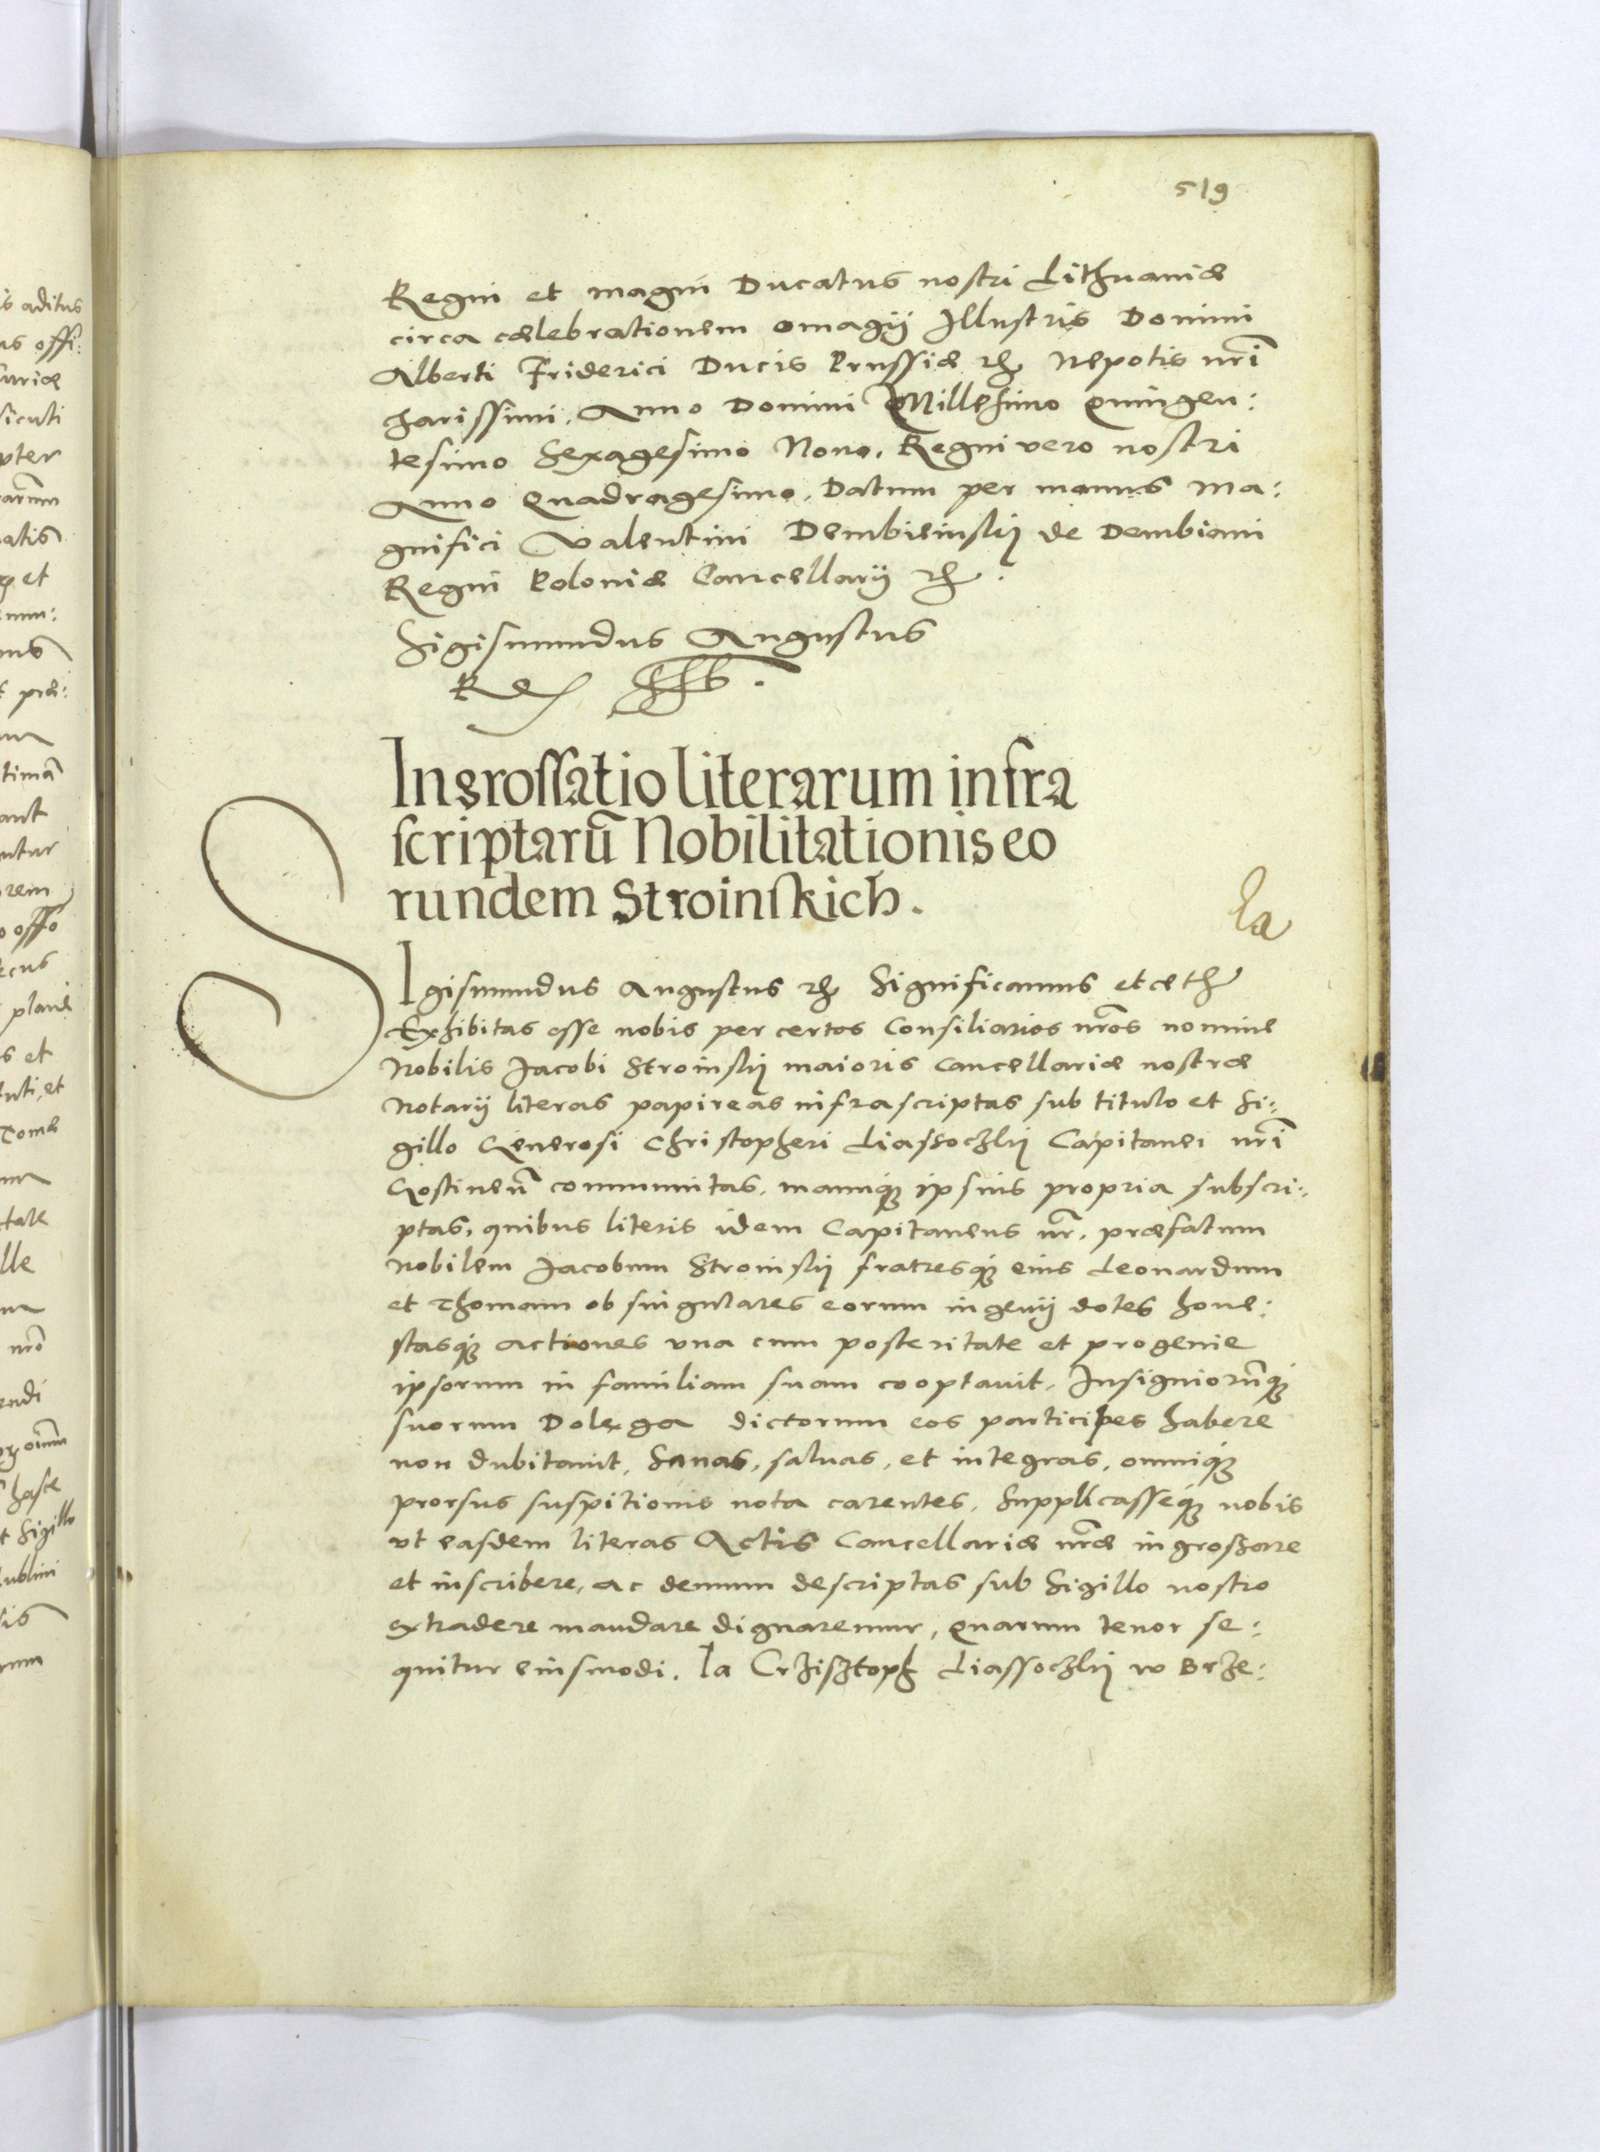 519
Regni et magni Ducatus nostri Lithuaniæ
circa cælebrationem omagij Illustris Domini
Alberti Friderici Ducis Prussiæ etc Nepotis nr̃i
charissimi. Anno Domini Millesimo Quingen:
tesimo Sexagesimo Nono. Regni vero nostri
Anno Quadragesimo. Datum per manus Ma:
gnifici Valentini Dembieinskij de Dembiani
Regni Poloniæ Cancellarij etc.
Sigismundus Augustus
Rex
Ingrossatio literarum infra
scriptarũ Nobilitationis eo
rundem Stroinskich.
la
SIgismundus Augustus etc Significamus et cæth
Exhibitas esse nobis per certos Consiliarios nr̃os nomine
Nobilis Jacobi Stroinskij maioris Cancellariæ nostræ
Notarij literas papireas infrascriptas sub titulo et Si:
gillo Generosi Christopheri Liassoczkij Capitanei nr̃i
Gostineñ communitas, manuq́ ipsius propria subscri:
ptas, quibus literis idem Capitaneus nr̃. præfatum
Nobilem Jacobum Stroinskij fratresq́ eius Leonardum
et Thomam ob singulares eorum ingenij dotes hone:
stasq́ actiones una cum posteritate et progenie
ipsorum in familiam suam cooptavit, Insigniorum̃q́
suorum Dolega dictorum eos participes habere
non dubitavit, Sanas, salvas, et integras, omniq́
prorsus suspitionis nota carentes. Supplicasseq́ nobis
vt easdem literas Actis Cancellariæ nr̃æ ingrossare
et inscribere, ac demum descriptas sub Sigillo nostro
extradere mandare dignaremur, Quarum tenor se:
quitur eiusmodi. Ia Crzisztoph Liassoczkij w Brze: